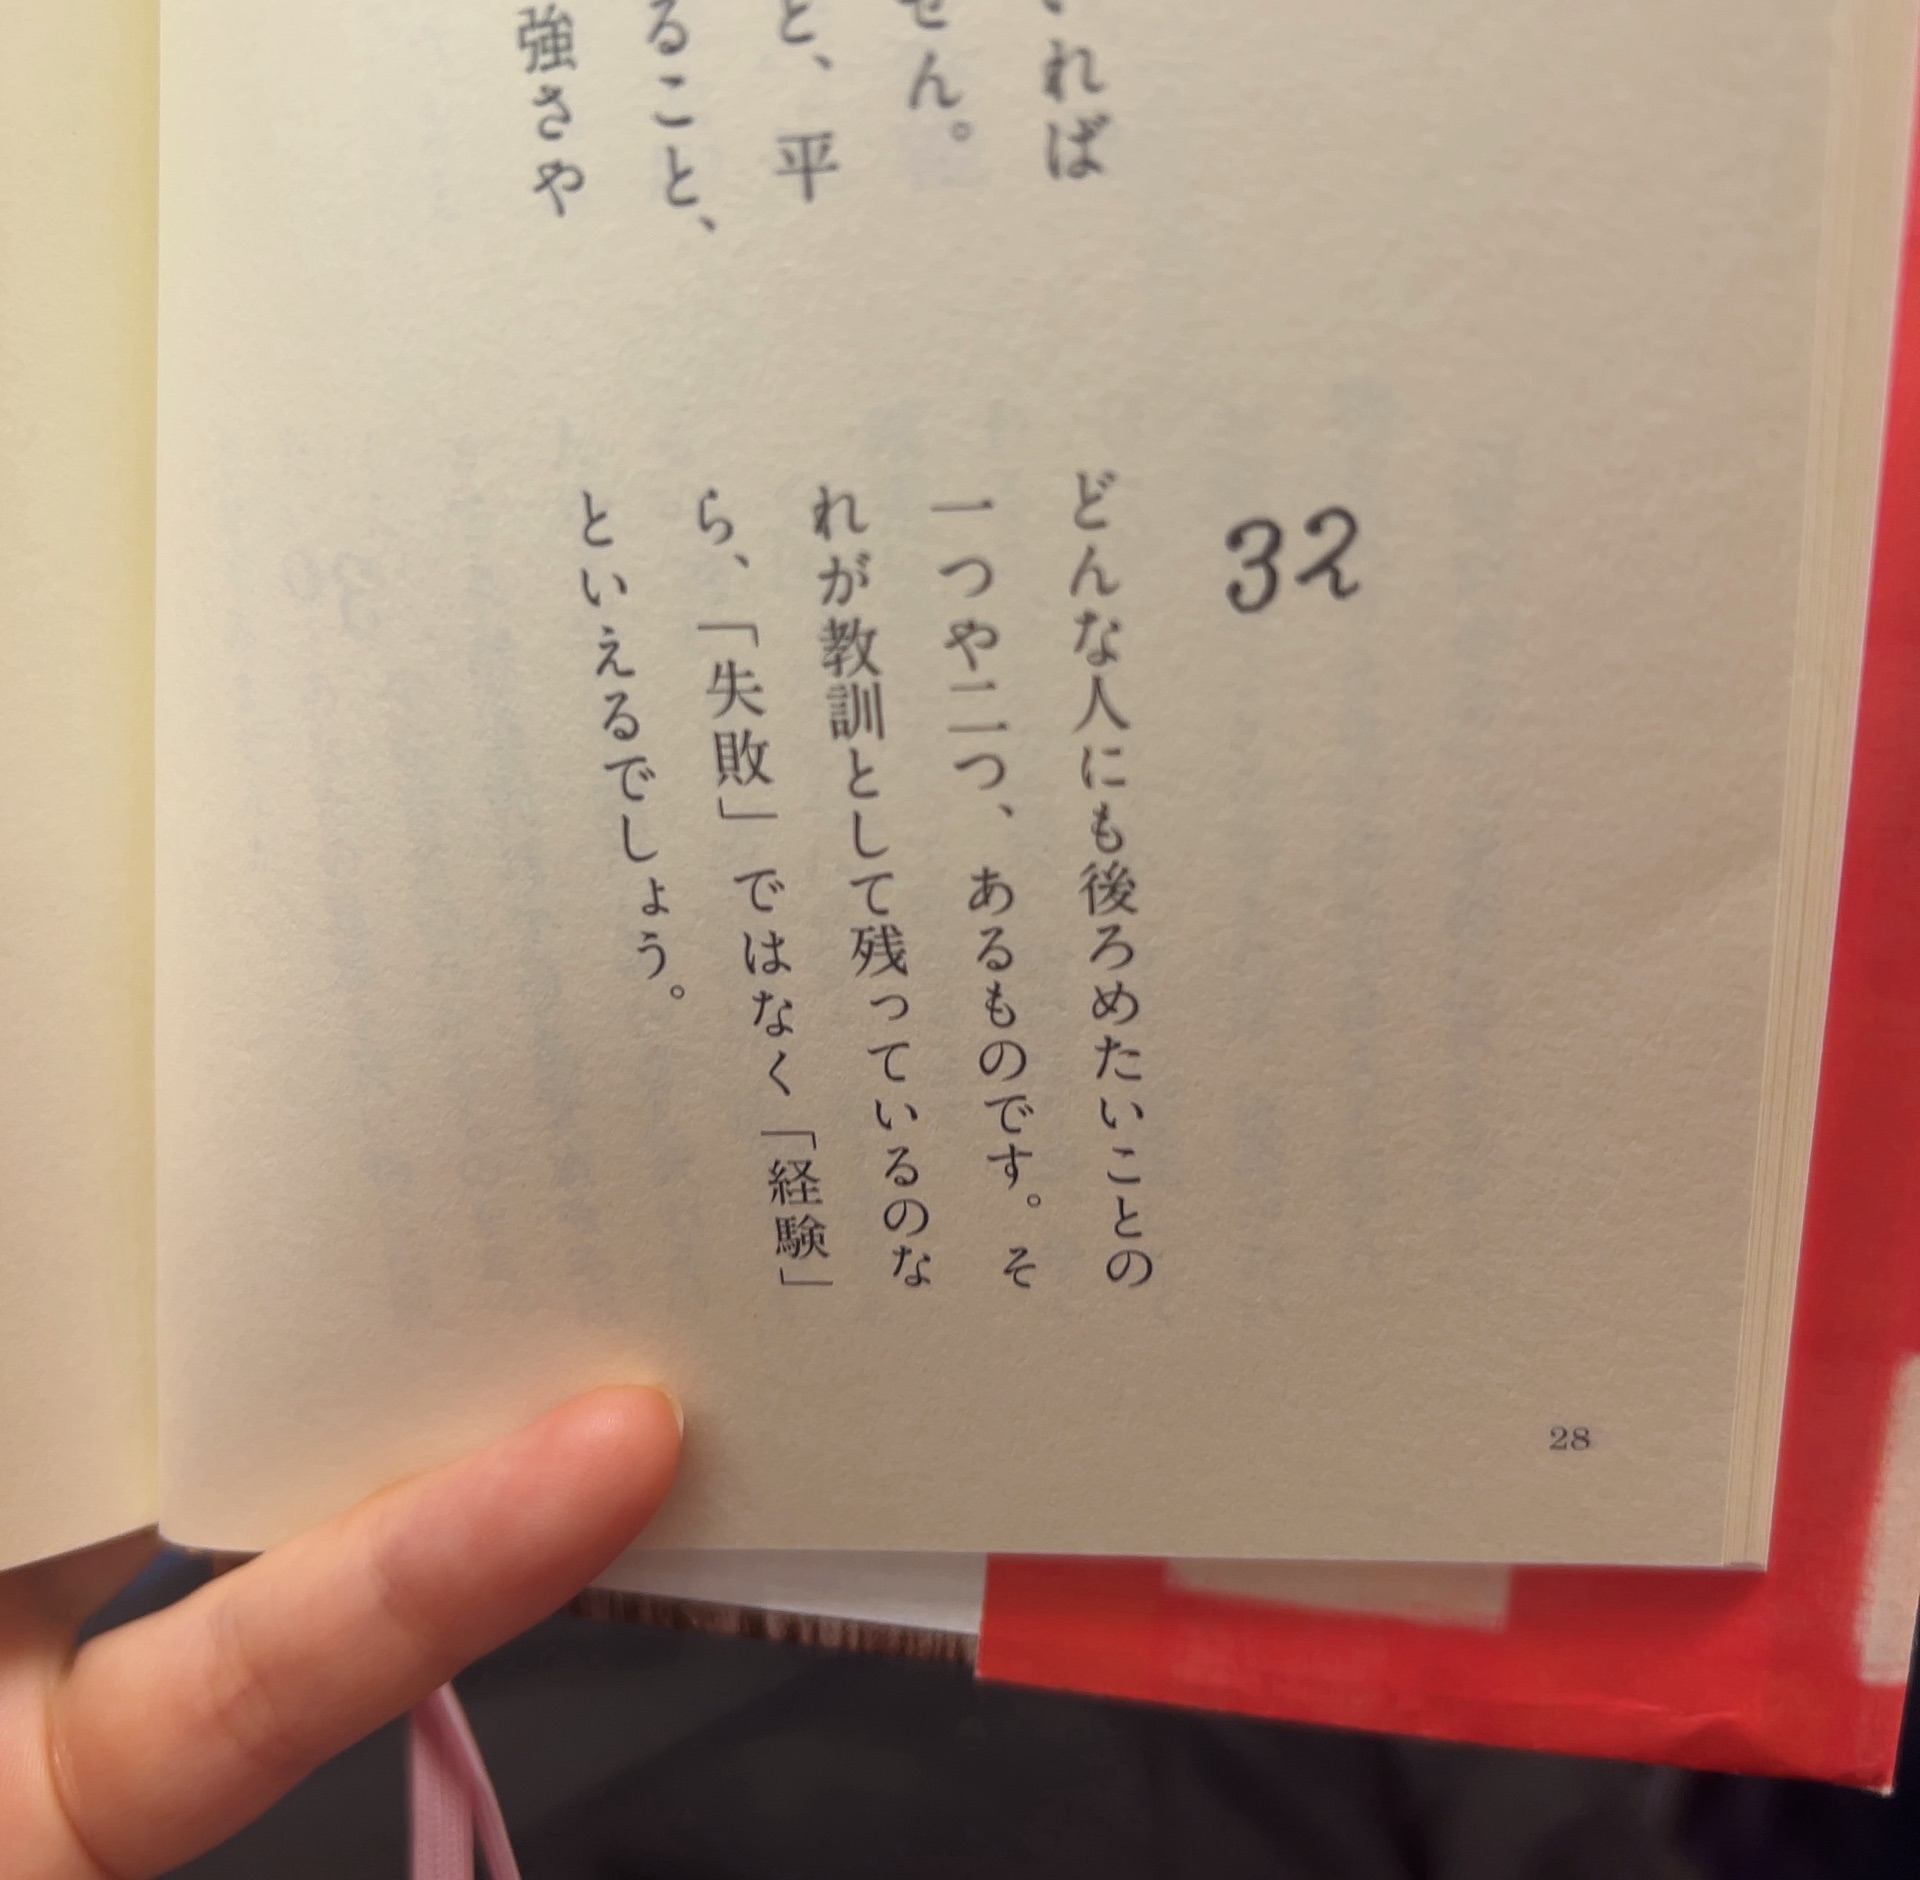 れば
せん。
と、平
ること、
強さや
32
どんな人にも後ろめたいことの
一つや二つ、あるものです。そ
れが教訓として残っているのな
ら、「失敗」ではなく「経験」
といえるでしょう。
28